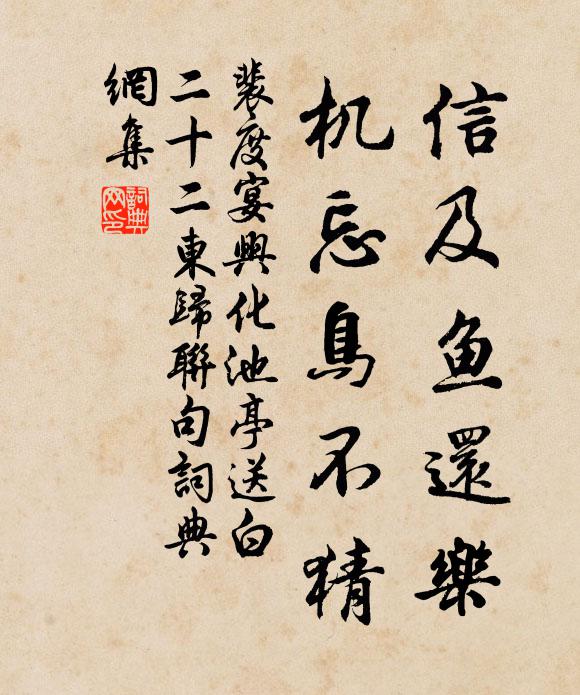 信及鱼還樂
机忘鳥不猜
裴度宴興化池亭送白
二十二東歸聯句詞典
網集
詞典
网印